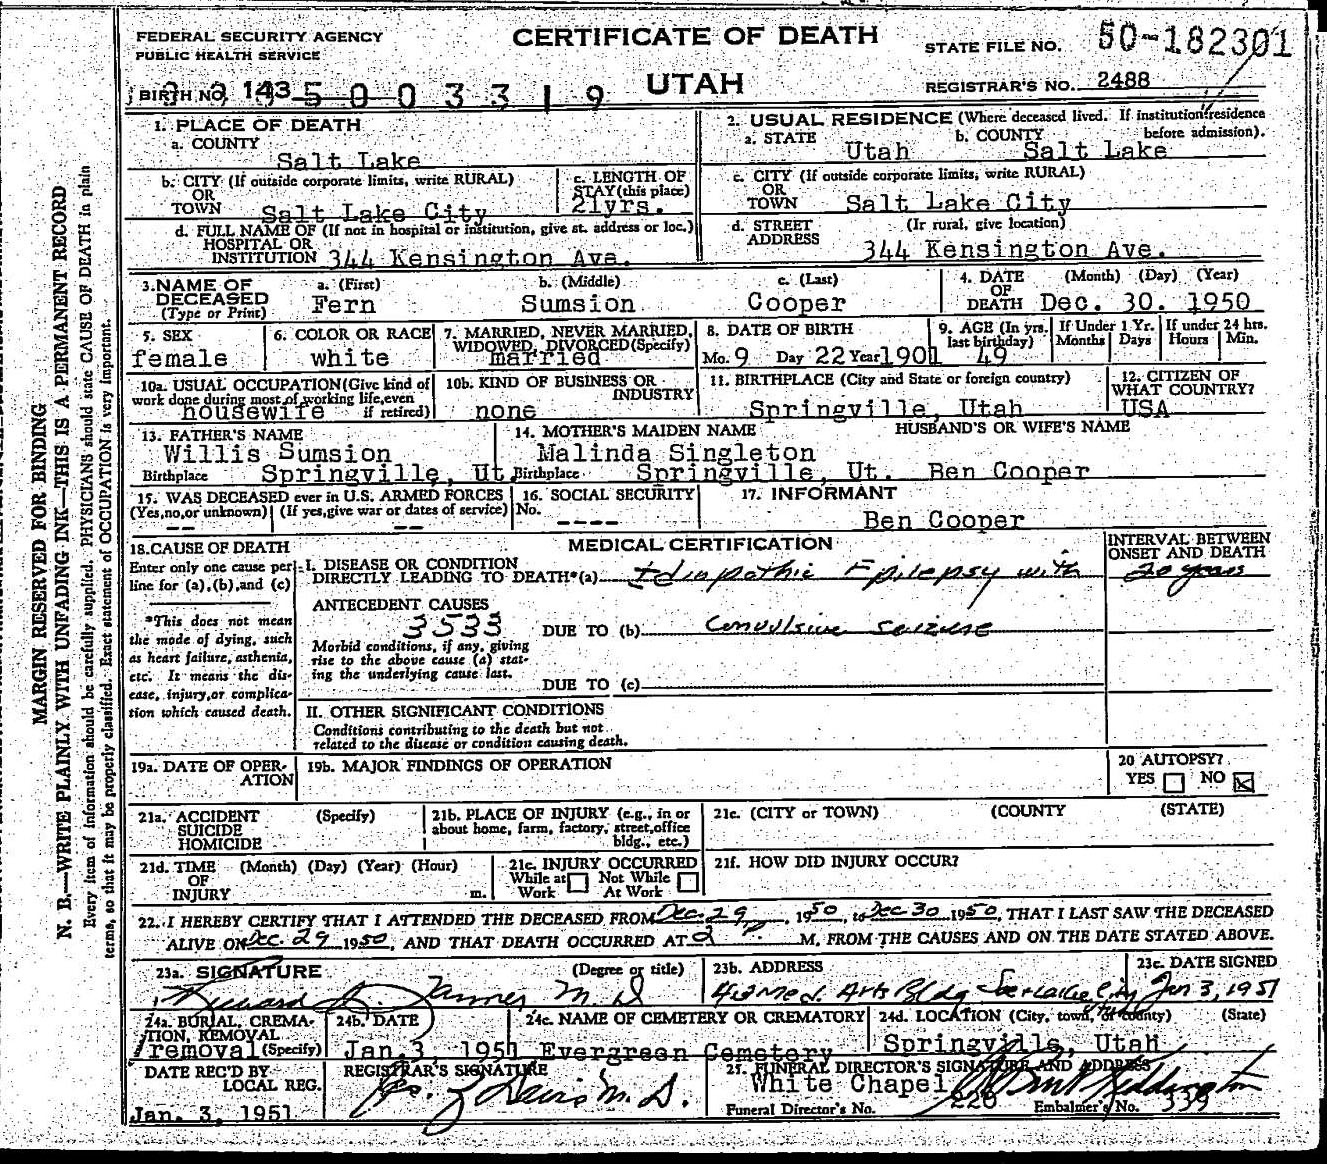 FEDERAL SECURITY AGENCY
PUBLIC HEALTH SERVICE
CERTIFICATE OF DEATH
UTAH
STATE FILE NO. 50-182301
REGISTRAR'S NO. 2488
BIRTH NO. 143
5 0 0 3 3 1 9
1. PLACE OF DEATH
a. COUNTY
Salt Lake
2. USUAL RESIDENCE (Where deceased lived. If institution: residence before admission).
a. STATE Utah
b. COUNTY Salt Lake
b. CITY (If outside corporate limits, write RURAL)
OR
TOWN Salt Lake City
c. LENGTH OF STAY (this place)
21yrs.
c. CITY (If outside corporate limits, write RURAL)
OR
TOWN Salt Lake City
d. FULL NAME OF (If not in hospital or institution, give st. address or loc.)
HOSPITAL OR
INSTITUTION 344 Kensington Ave.
d. STREET ADDRESS (If rural, give location)
344 Kensington Ave.
3. NAME OF DECEASED (Type or Print)
a. (First) Fern
b. (Middle) Sumsion
c. (Last) Cooper
4. DATE OF DEATH (Month) (Day) (Year)
Dec. 30. 1950
5. SEX
female
6. COLOR OR RACE
white
7. MARRIED, NEVER MARRIED, WIDOWED, DIVORCED (Specify)
married
8. DATE OF BIRTH
Mo. 9 Day 22 Year 1901
9. AGE (In yrs. last birthday)
49
If Under 1 Yr. Months Days
If under 24 hrs. Hours Min.
10a. USUAL OCCUPATION (Give kind of work done during most of working life, even if retired)
housewife
10b. KIND OF BUSINESS OR INDUSTRY
none
11. BIRTHPLACE (City and State or foreign country)
Springville, Utah
12. CITIZEN OF WHAT COUNTRY?
USA
13. FATHER'S NAME
Willis Sumsion
Birthplace Springville, Ut.
14. MOTHER'S MAIDEN NAME
Malinda Singleton
Birthplace Springville, Ut.
HUSBAND'S OR WIFE'S NAME
Ben Cooper
15. WAS DECEASED ever in U.S. ARMED FORCES
(Yes, no, or unknown) (If yes, give war or dates of service)
-- --
16. SOCIAL SECURITY No.
----
17. INFORMANT
Ben Cooper
18. CAUSE OF DEATH
Enter only one cause per line for (a), (b), and (c)
*This does not mean the mode of dying, such as heart failure, asthenia, etc. It means the disease, injury, or complication which caused death.
MEDICAL CERTIFICATION
INTERVAL BETWEEN ONSET AND DEATH
I. DISEASE OR CONDITION
DIRECTLY LEADING TO DEATH*(a) Idiopathic Epilepsy with
20 years
ANTECEDENT CAUSES
3533
DUE TO (b) convulsive seizure
Morbid conditions, if any, giving rise to the above cause (a) stating the underlying cause last.
DUE TO (c)
II. OTHER SIGNIFICANT CONDITIONS
Conditions contributing to the death but not related to the disease or condition causing death.
19a. DATE OF OPERATION
19b. MAJOR FINDINGS OF OPERATION
20 AUTOPSY?
YES NO
21a. ACCIDENT SUICIDE HOMICIDE (Specify)
21b. PLACE OF INJURY (e.g., in or about home, farm, factory, street, office bldg., etc.)
21c. (CITY or TOWN) (COUNTY) (STATE)
21d. TIME OF INJURY (Month) (Day) (Year) (Hour) m.
21e. INJURY OCCURRED
While at Work Not While At Work
21f. HOW DID INJURY OCCUR?
22. I HEREBY CERTIFY THAT I ATTENDED THE DECEASED FROM Dec. 29, 1950, to Dec 30 1950, THAT I LAST SAW THE DECEASED
ALIVE ON Dec. 29 1950, AND THAT DEATH OCCURRED AT 2 P. M. FROM THE CAUSES AND ON THE DATE STATED ABOVE.
23a. SIGNATURE (Degree or title)
Tanner M. D
23b. ADDRESS
Med. Arts Bldg Salt Lake City
23c. DATE SIGNED
Jan 3, 1951
24a. BURIAL, CREMATION, REMOVAL (Specify)
removal
24b. DATE
Jan. 3, 1951
24c. NAME OF CEMETERY OR CREMATORY
Evergreen Cemetery
24d. LOCATION (City, town, or county) (State)
Springville, Utah
DATE REC'D BY LOCAL REG.
Jan. 3, 1951
REGISTRAR'S SIGNATURE
Davis M. D.
25. FUNERAL DIRECTOR'S SIGNATURE AND ADDRESS
White Chapel
Funeral Director's No. 228 Embalmer's No. 339
MARGIN RESERVED FOR BINDING
N. B.—WRITE PLAINLY WITH UNFADING INK—THIS IS A PERMANENT RECORD
Every item of information should be carefully supplied. PHYSICIANS should state CAUSE OF DEATH in plain
terms, so that it may be properly classified. Exact statement of OCCUPATION is very important.